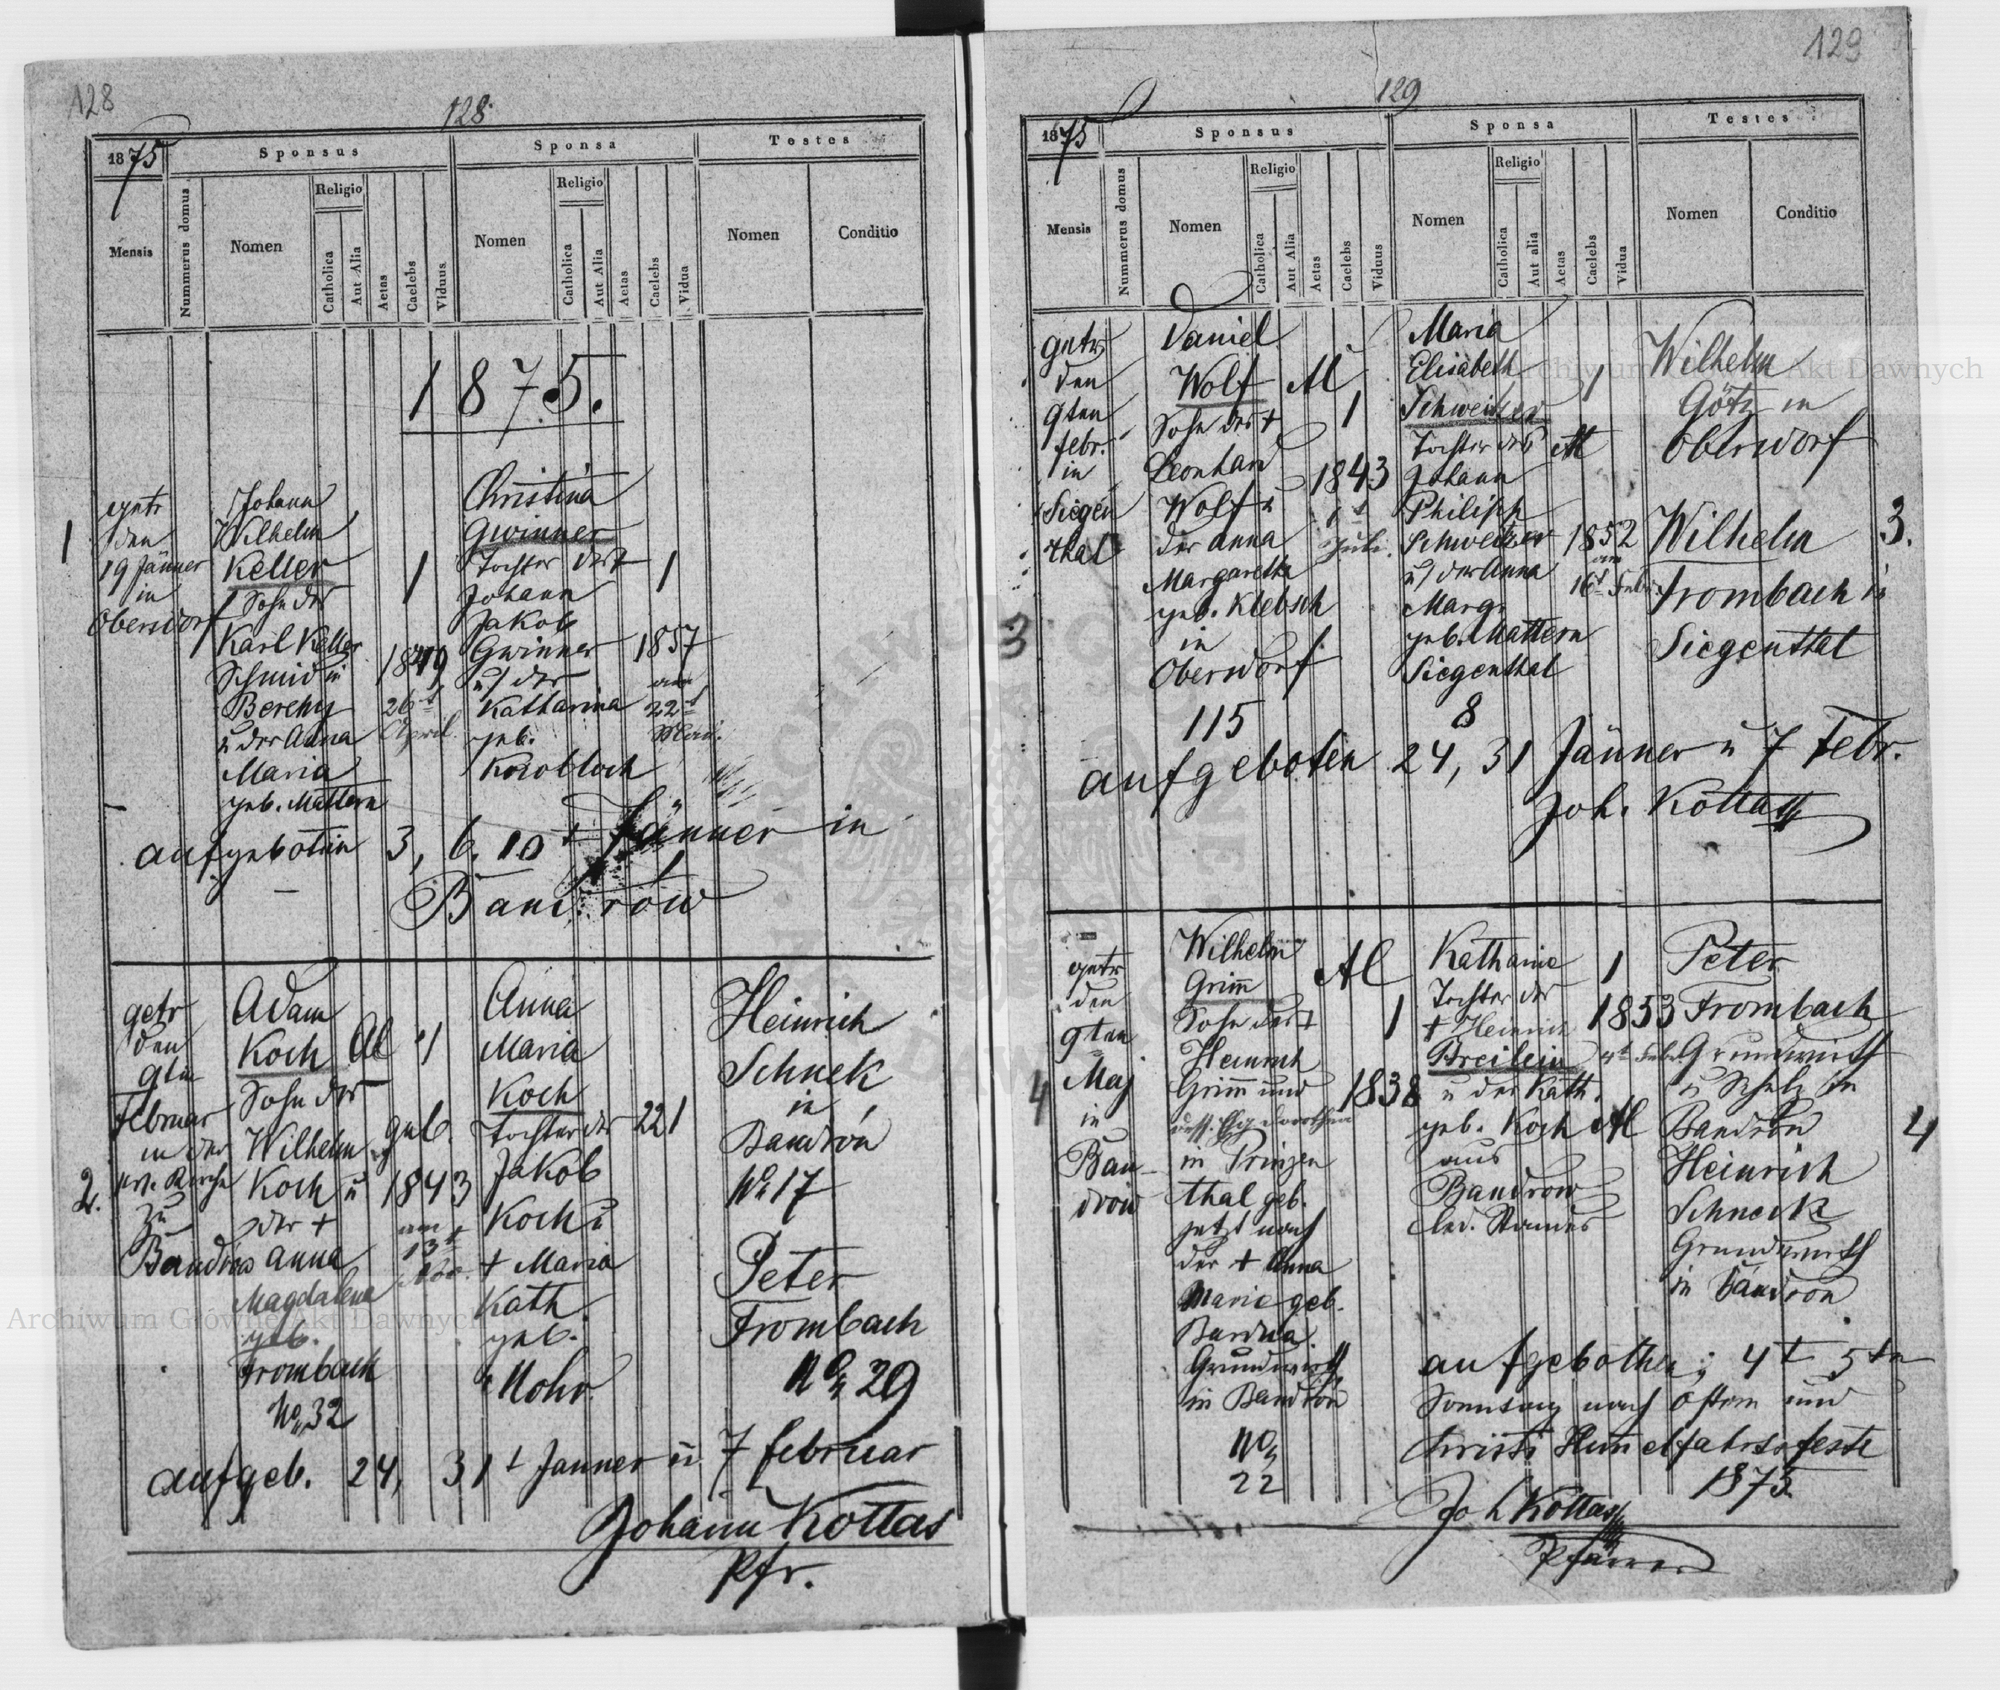 128
128.
1875
Sponsus
Sponsa
Testes
Mensis
Nummerus domus
Nomen
Religio
Catholica
Aut Alia
Aetas
Caelebs
Viduus
Nomen
Religio
Catholica
Aut Alia
Aetas
Caelebs
Vidua
Nomen
Conditio
1875.
1
getr
den
19 Jänner
in
Oberndorf
Johann
Wilhelm
Keller
Sohn der
Karl Keller
Schmid in
Berehy
u der Anna
Maria
geb. Mattern
1
1849
26t
April
Christina
Gwinner
Tochter des +
Johann
Jakob
Gwinner
u der
Katharina
geb.
Knobloch
1
1857
am
22t
aufgeboten 3, 6, 10t Jänner in
Bandrów
2.
getr
den
9ten
Februar
in der
ev. Kirche
zu
Bandrow
Adam
Koch
Sohn der
Wilhelm
Koch u
der +
Anna
Magdalena
geb.
Trombach
No 32
Al
1
geb.
1843
am
13t
Anna
Maria
Koch
Tochter der
Jakob
Koch u
+ Maria
Kath
geb.
Mohr
22 1
Heinrich
Schnek
in
Bandrón
No 17
Peter
Trombach
No 29
aufgeb. 24, 31t Janner u 7 februar
Johann Kottas
Pfr.
129
129
1875
Sponsus
Sponsa
Testes
Mensis
Nummerus domus
Nomen
Religio
Catholica
Aut Alia
Aetas
Caelebs
Viduus
Nomen
Religio
Catholica
Aut alia
Aetas
Caelebs
Vidua
Nomen
Conditio
3
getr
den
9ten
febr.
in
Siegen
thal
Daniel
Wolf
Sohn des +
Leonhard
Wolf u
der Anna
Margaretha
geb. Klebsch
in
Oberndorf
115
Al
1
1843
1t
Juli
Maria
Elisabeth
Schweitzer
Tochter des
Johann
Philipp
Schweitzer
u der Anna
Marg.
geb. Mattern
Siegenthal
8
1
Al
1852
am
16t Febr.
Wilhelm
Götz in
Oberndorf
Wilhelm
Trombach in
Siegenthal
3.
aufgeboten 24, 31 Jänner u 7 Febr.
Joh. Kottas
4
getr
den
9ten
Maj
in
Ban-
drow
Wilhelm
Grimm
Sohn der +
Heinrich
Grimm und
in Prinzen
thal geb.
jetzt nach
der + Anna
Marie geb.
Grundwirth
in Bandrón
No
22
Al
1
1838
Kathanie
Tochter der
+ Heinrich
Breilein
u der Kath.
geb. Koch
aus
Bandrow
led. Standes
1
1853
Al
Peter
Trombach
Grundwirth
u Schulz in
Bandrón
Heinrich
Schneck
Grundwirth
in Bandron
4
aufgebothen; 4t 5ten
Sonntag nach Ostern und
Christi Himmelfahrtsfeste
1875.
Joh Kottas
Pfarrer
Archiwum Główne Akt Dawnych
Archiwum Główne Akt Dawnych